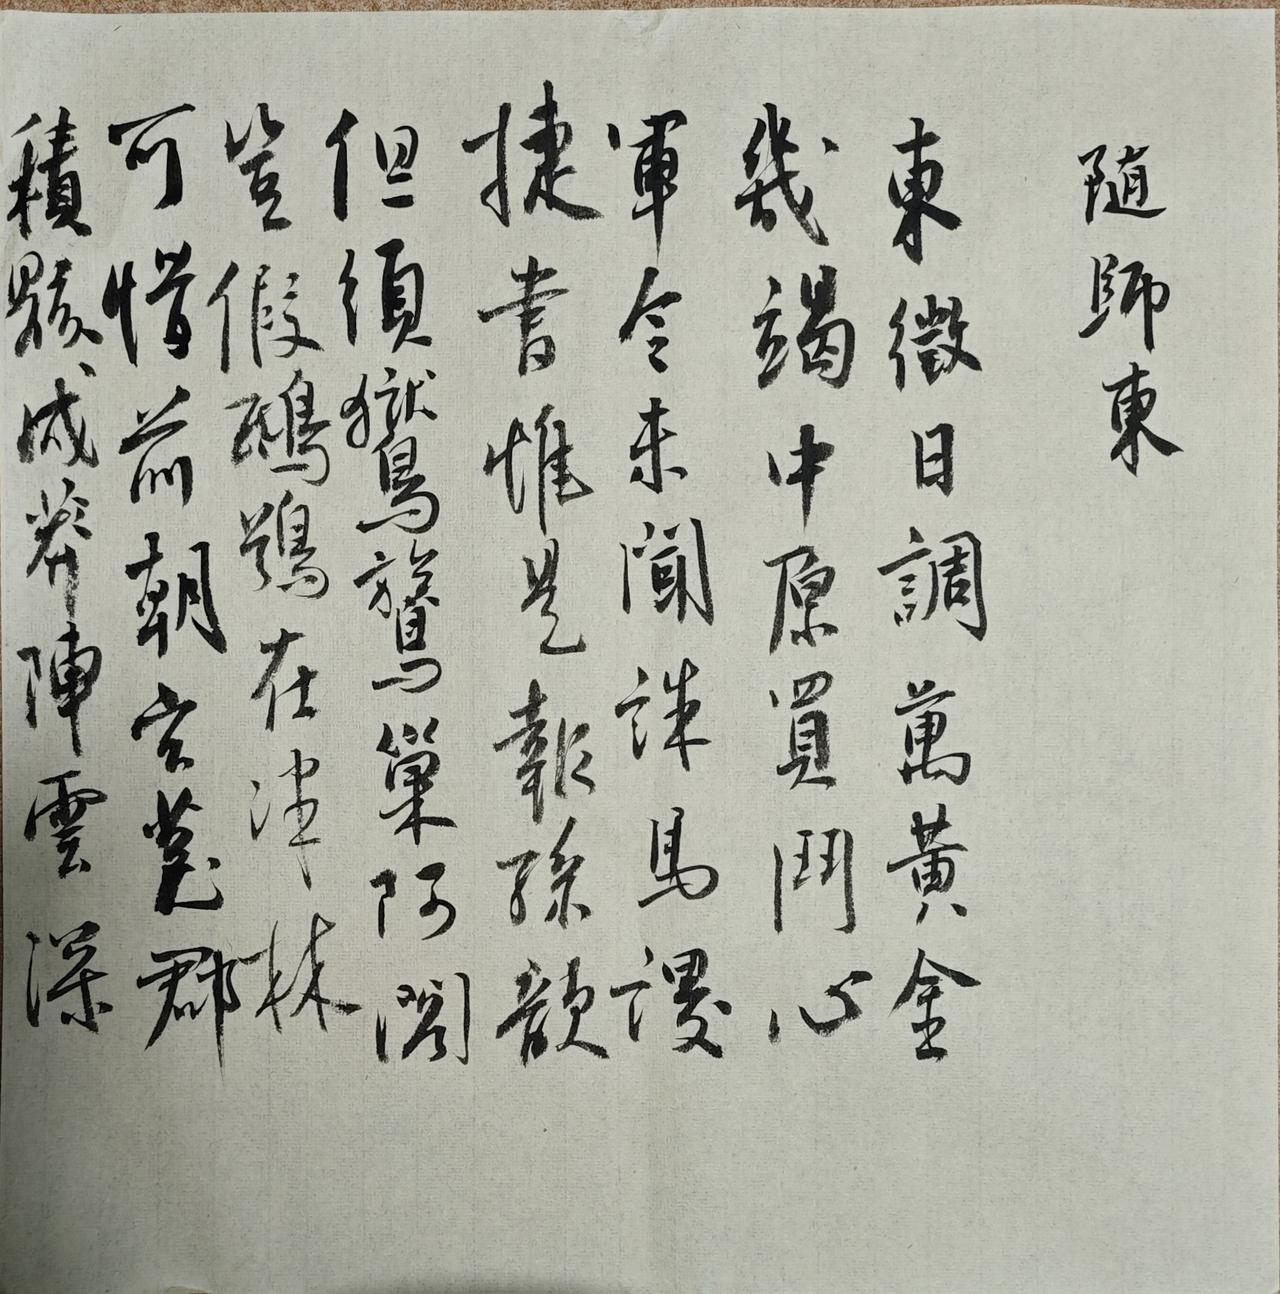 隨師東
東徵日調萬黃金
幾竭中原買鬥心
軍令未聞誅馬謖
捷書惟是報孫歆
但須鸑鷟巢阿閣
豈假鴟鴞在泮林
可惜前朝玄菟郡
積骸成莽陣雲深